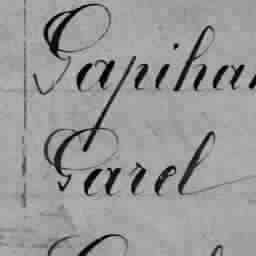 Gapihan
Garel